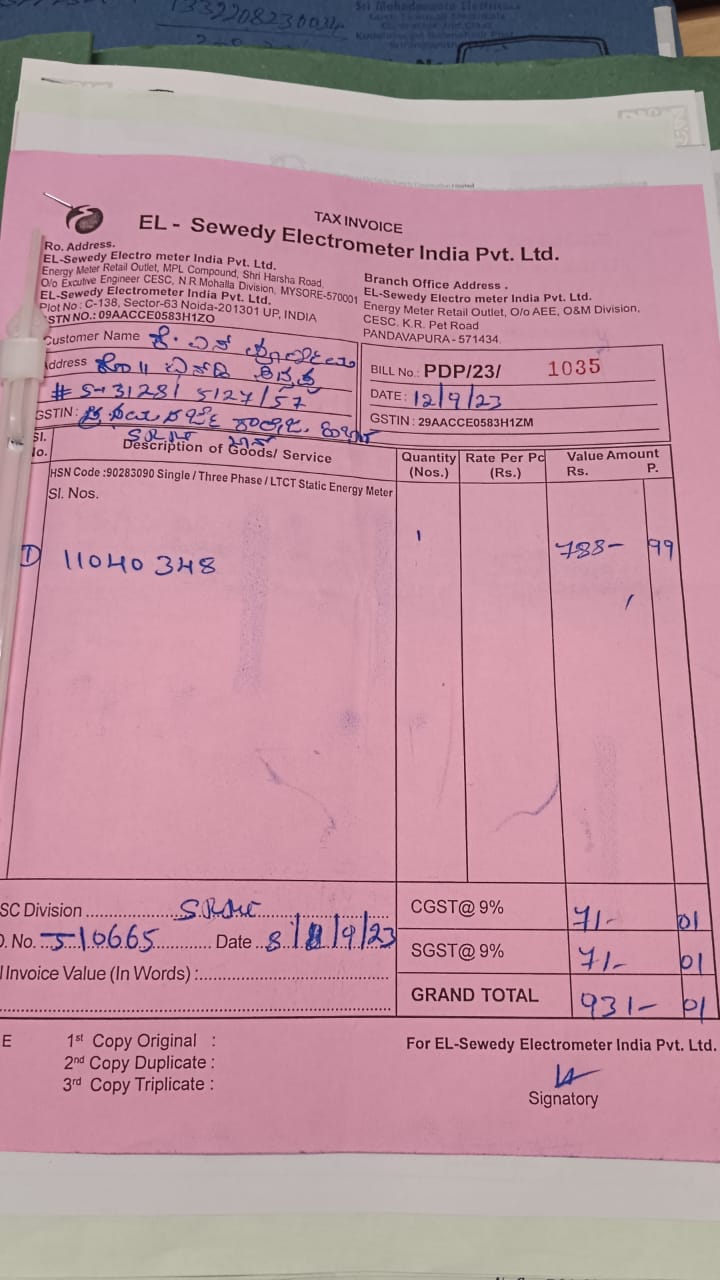 1339208230034
Sri Mahadeswara Electricals
TAX INVOICE
EL - Sewedy Electrometer India Pvt. Ltd.
Ro. Address.
EL-Sewedy Electro meter India Pvt. Ltd.
Energy Meter Retail Outlet, MPL Compound, Shri Harsha Road,
O/o Excutive Engineer CESC, N.R.Mohalla Division, MYSORE-570001
EL-Sewedy Electrometer India Pvt. Ltd.
Plot No : C-138, Sector-63 Noida-201301 UP, INDIA
STN NO.: 09AACCE0583H1ZO
Branch Office Address .
EL-Sewedy Electro meter India Pvt. Ltd.
Energy Meter Retail Outlet, O/o AEE, O&M Division,
CESC. K.R. Pet Road
PANDAVAPURA - 571434.
Customer Name
ddress
# S-3128/ 5127/57
GSTIN :
BILL No.: PDP/23/ 1035
DATE : 12/9/23
GSTIN : 29AACCE0583H1ZM
Sl. No. Description of Goods/ Service Quantity (Nos.) Rate Per Pc (Rs.) Value Amount Rs. P.
HSN Code :90283090 Single / Three Phase / LTCT Static Energy Meter
Sl. Nos.
① 11040348 1 788- 99
SC Division
CGST@ 9% 71- 01
. No. 510665 Date 8/9/23
SGST@ 9% 71- 01
l Invoice Value (In Words) :
GRAND TOTAL 931- 01
E 1st Copy Original :
2nd Copy Duplicate :
3rd Copy Triplicate :
For EL-Sewedy Electrometer India Pvt. Ltd.
Signatory